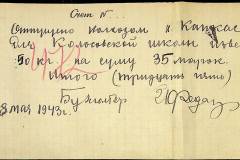 Счет №
Отпущено колхозом "Кавказ
Для Колосьской школы изве
50 кг. на сумму 35 марок.
Итого (тридцать пять)
Бухгалтер
8 мая 1943 г.